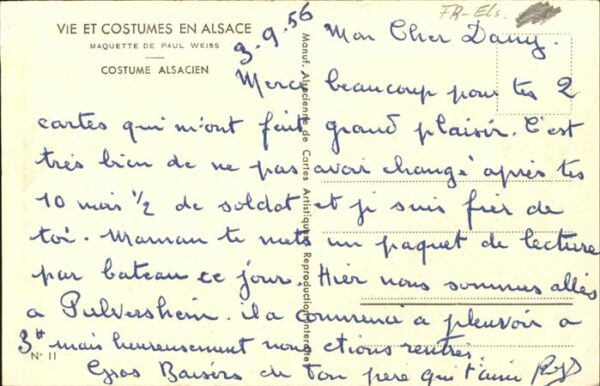 VIE ET COSTUMES EN ALSACE
MAQUETTE DE PAUL WEISS
COSTUME ALSACIEN
3.9.56
FR-Els.
Mon Cher Dany.
Merci beaucoup pour tes 2
cartes qui m'ont fait grand plaisir. C'est
très bien de ne pas avoir changé après tes
10 mois 1/2 de soldat et je suis fier de
toi. Maman te mets un paquet de lecture
par bateau ce jour. Hier nous sommes allés
a Pulversheim. il a commencé a pleuvoir a
3h mais heureusement nous etions rentrés.
Gros Baisers de ton père qui t'aime
N° 11
Manuf. Alsacienne de Cartes Artistiques Reproduction interdite